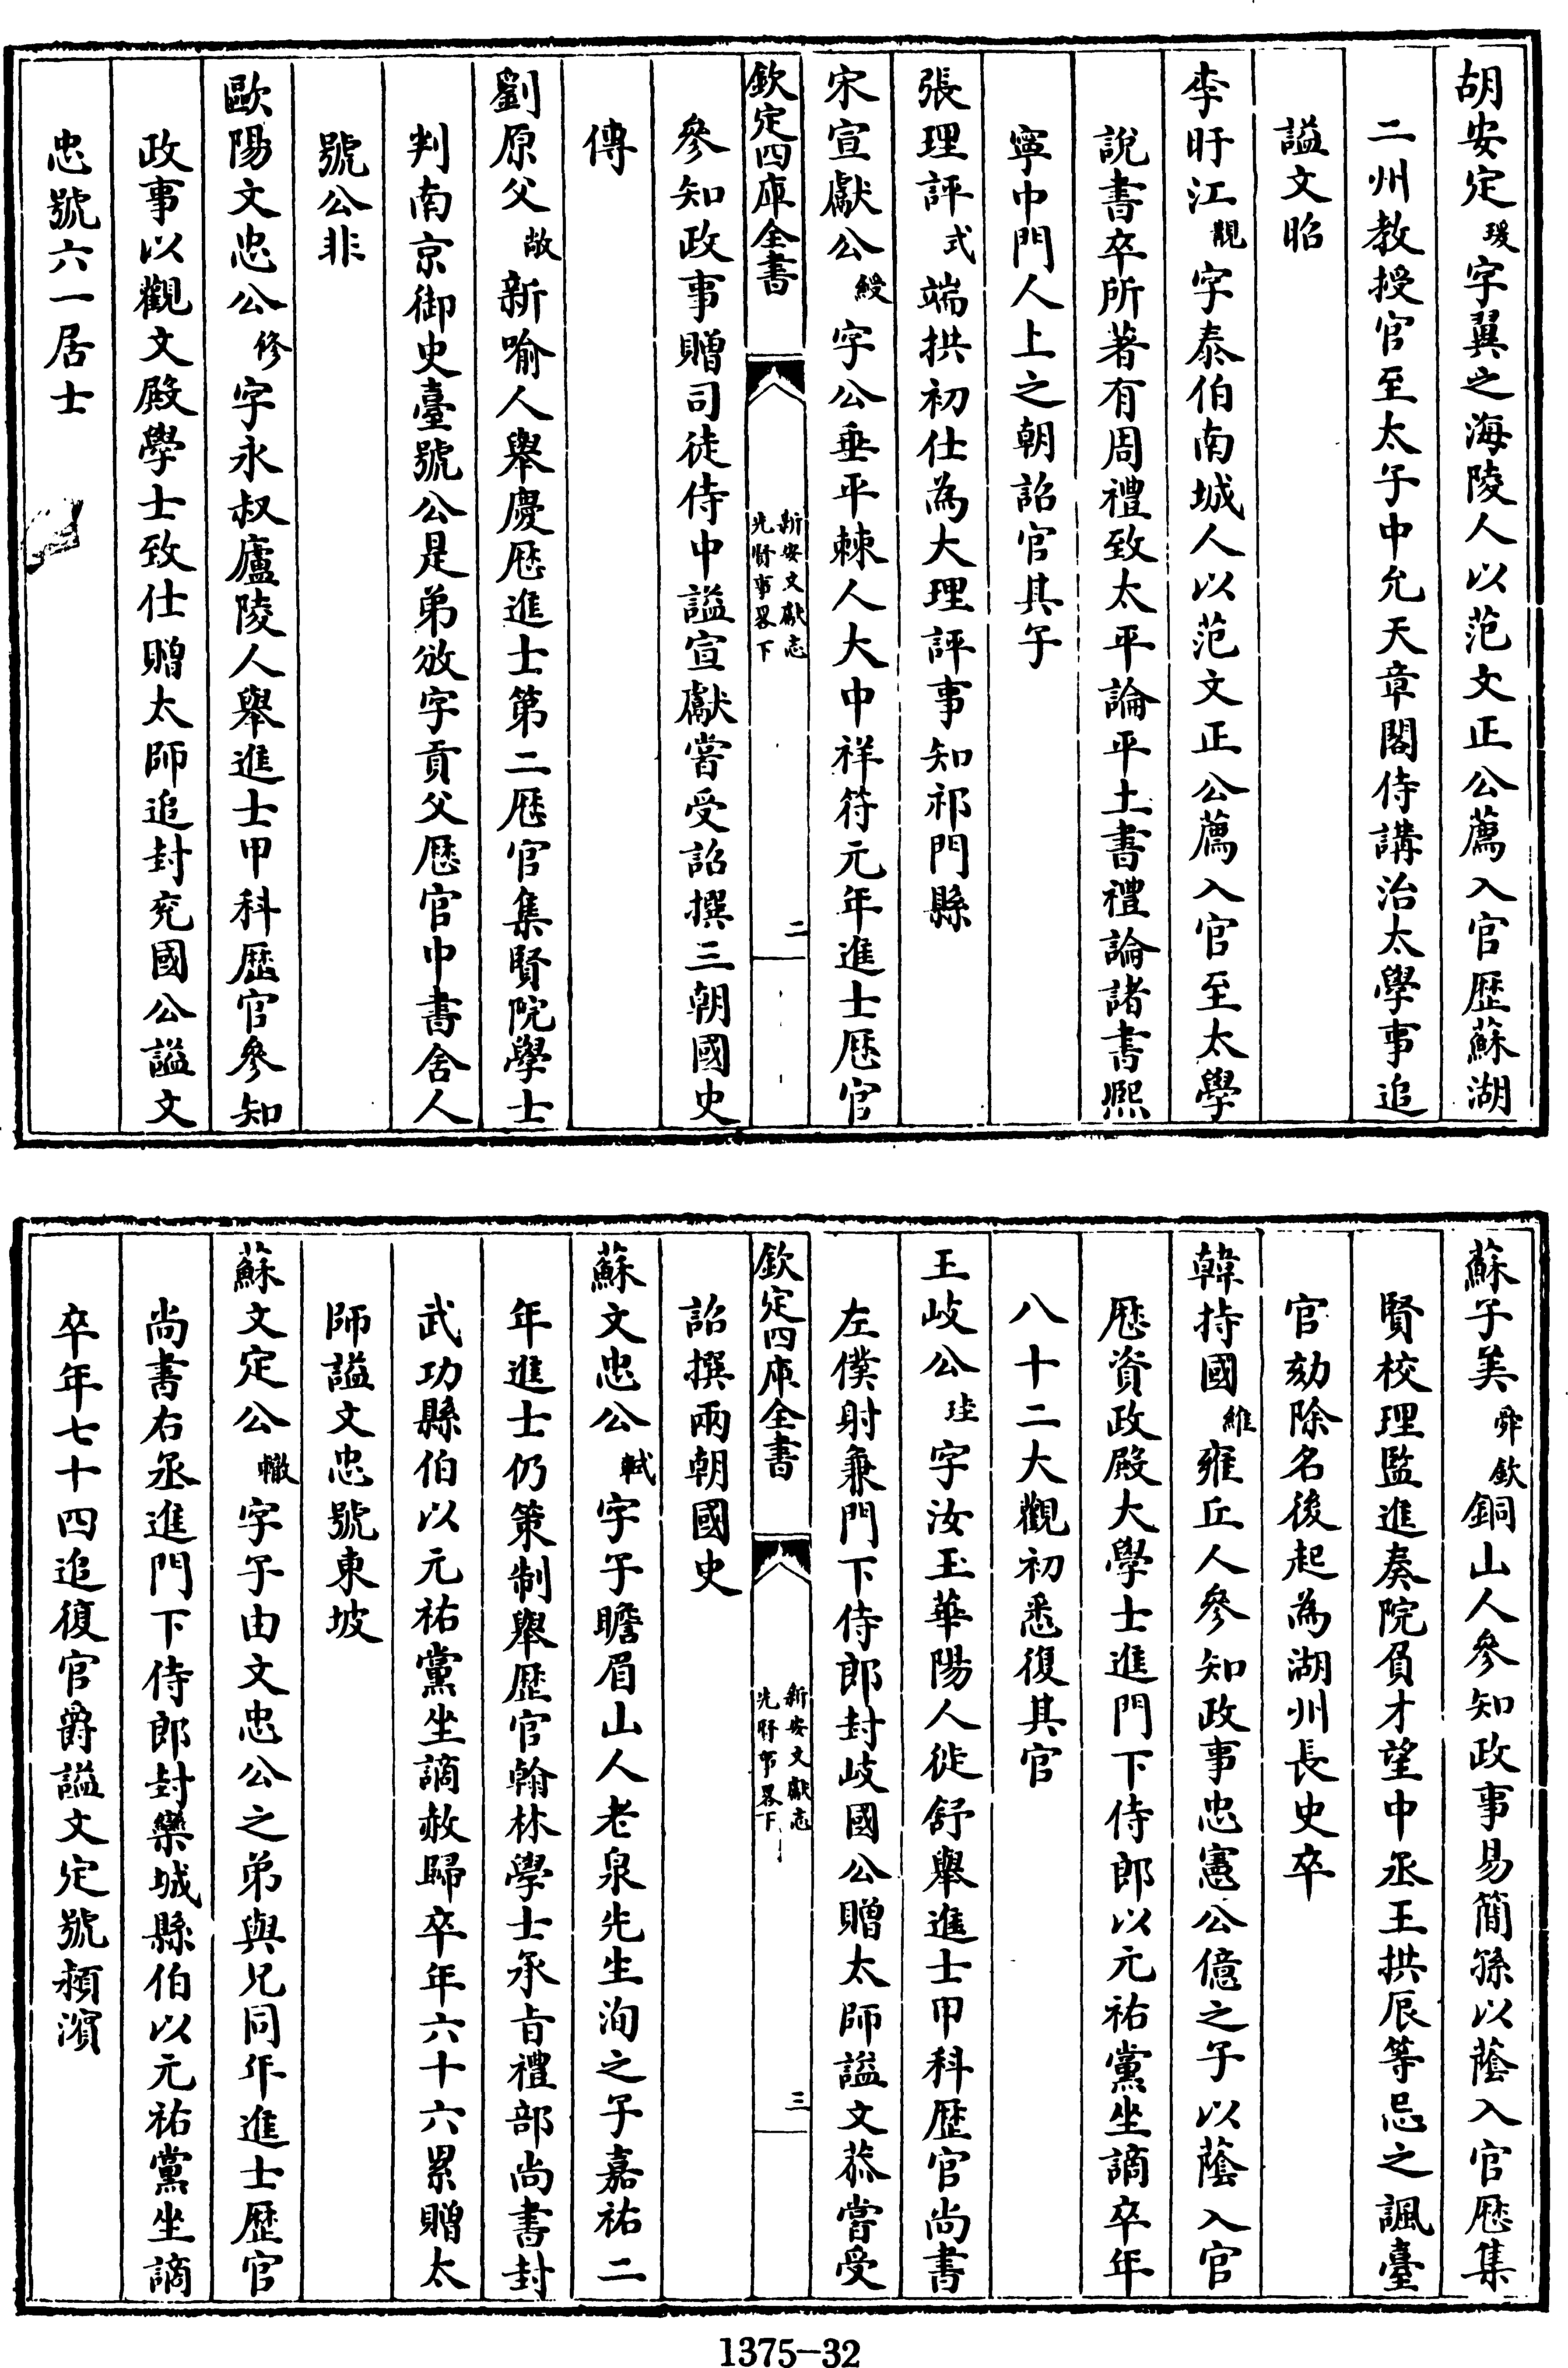 胡安定瑗字翼之海陵人以范文正公薦入官歴蘇湖
二州教授官至太子中允天章閣侍講治太學事追
諡文昭
李盱江覯字泰伯南城人以范文正公薦入官至太學
說書卒所著有周禮致太平論平土書禮論諸書熙
寧中門人上之朝詔官其子
張理評式端拱初仕為大理評事知祁門縣
宋宣獻公綬字公垂平棘人大中祥符元年進士歴官
欽定四庫全書
新安文獻志
先賢事畧下
二
參知政事贈司徒侍中諡宣獻嘗受詔撰三朝國史
傳
劉原父敞新喻人舉慶歴進士第二歴官集賢院學士
判南京御史臺號公是弟攽字貢父歴官中書舍人
號公非
歐陽文忠公修字永叔廬陵人舉進士甲科歴官參知
政事以觀文殿學士致仕贈太師追封兖國公諡文
忠號六一居士
蘇子美舜欽銅山人參知政事易簡孫以蔭入官歴集
賢校理監進奏院負才望中丞王拱辰等忌之諷臺
官劾除名後起為湖州長史卒
韓持國維雍丘人參知政事忠憲公億之子以蔭入官
歴資政殿大學士進門下侍郎以元祐黨坐謫卒年
八十二大觀初悉復其官
王岐公珪字汝玉華陽人徙舒舉進士甲科歴官尚書
左僕射兼門下侍郎封岐國公贈太師諡文恭嘗受
欽定四庫全書
新安文獻志
先賢事畧下
三
詔撰兩朝國史
蘇文忠公軾字子瞻眉山人老泉先生洵之子嘉祐二
年進士仍策制舉歴官翰林學士承旨禮部尚書封
武功縣伯以元祐黨坐謫赦歸卒年六十六累贈太
師諡文忠號東坡
蘇文定公轍字子由文忠公之弟與兄同年進士歴官
尚書右丞進門下侍郎封欒城縣伯以元祐黨坐謫
卒年七十四追復官爵諡文定號潁濱
1375-32